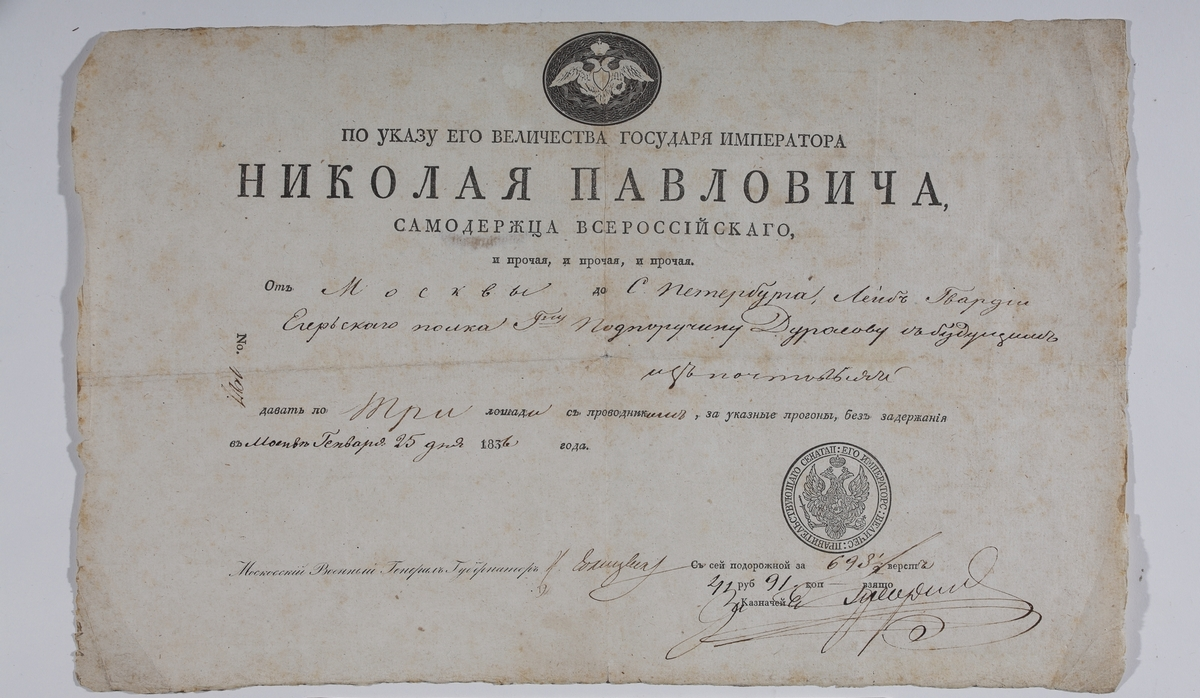 ПО УКАЗУ ЕГО ВЕЛИЧЕСТВА ГОСУДАРЯ ИМПЕРАТОРА
НИКОЛАЯ ПАВЛОВИЧА,
САМОДЕРЖЦА ВСЕРОССІЙСКАГО,
и прочая, и прочая, и прочая.
Отъ Москвы до С. Петербурга, Лейбъ Гвардіи
Егерьскаго полка Гну Подпоручику Дурасову съ будущимъ
No.
давать по три лошади съ проводникомъ, за указные прогоны, безъ задержанія
въ Москвѣ Генваря 25 дня 1836 года.
ЕГО ИМПЕРАТОРС: ВЕЛИЧЕС: ПРАВИТЕЛЬСТВУЮЩАГО СЕНАТА
Московскій Военный Генералъ Губернаторъ
Съ сей подорожной за 698 1/2 верстъ
руб 91 коп взято
Казначей